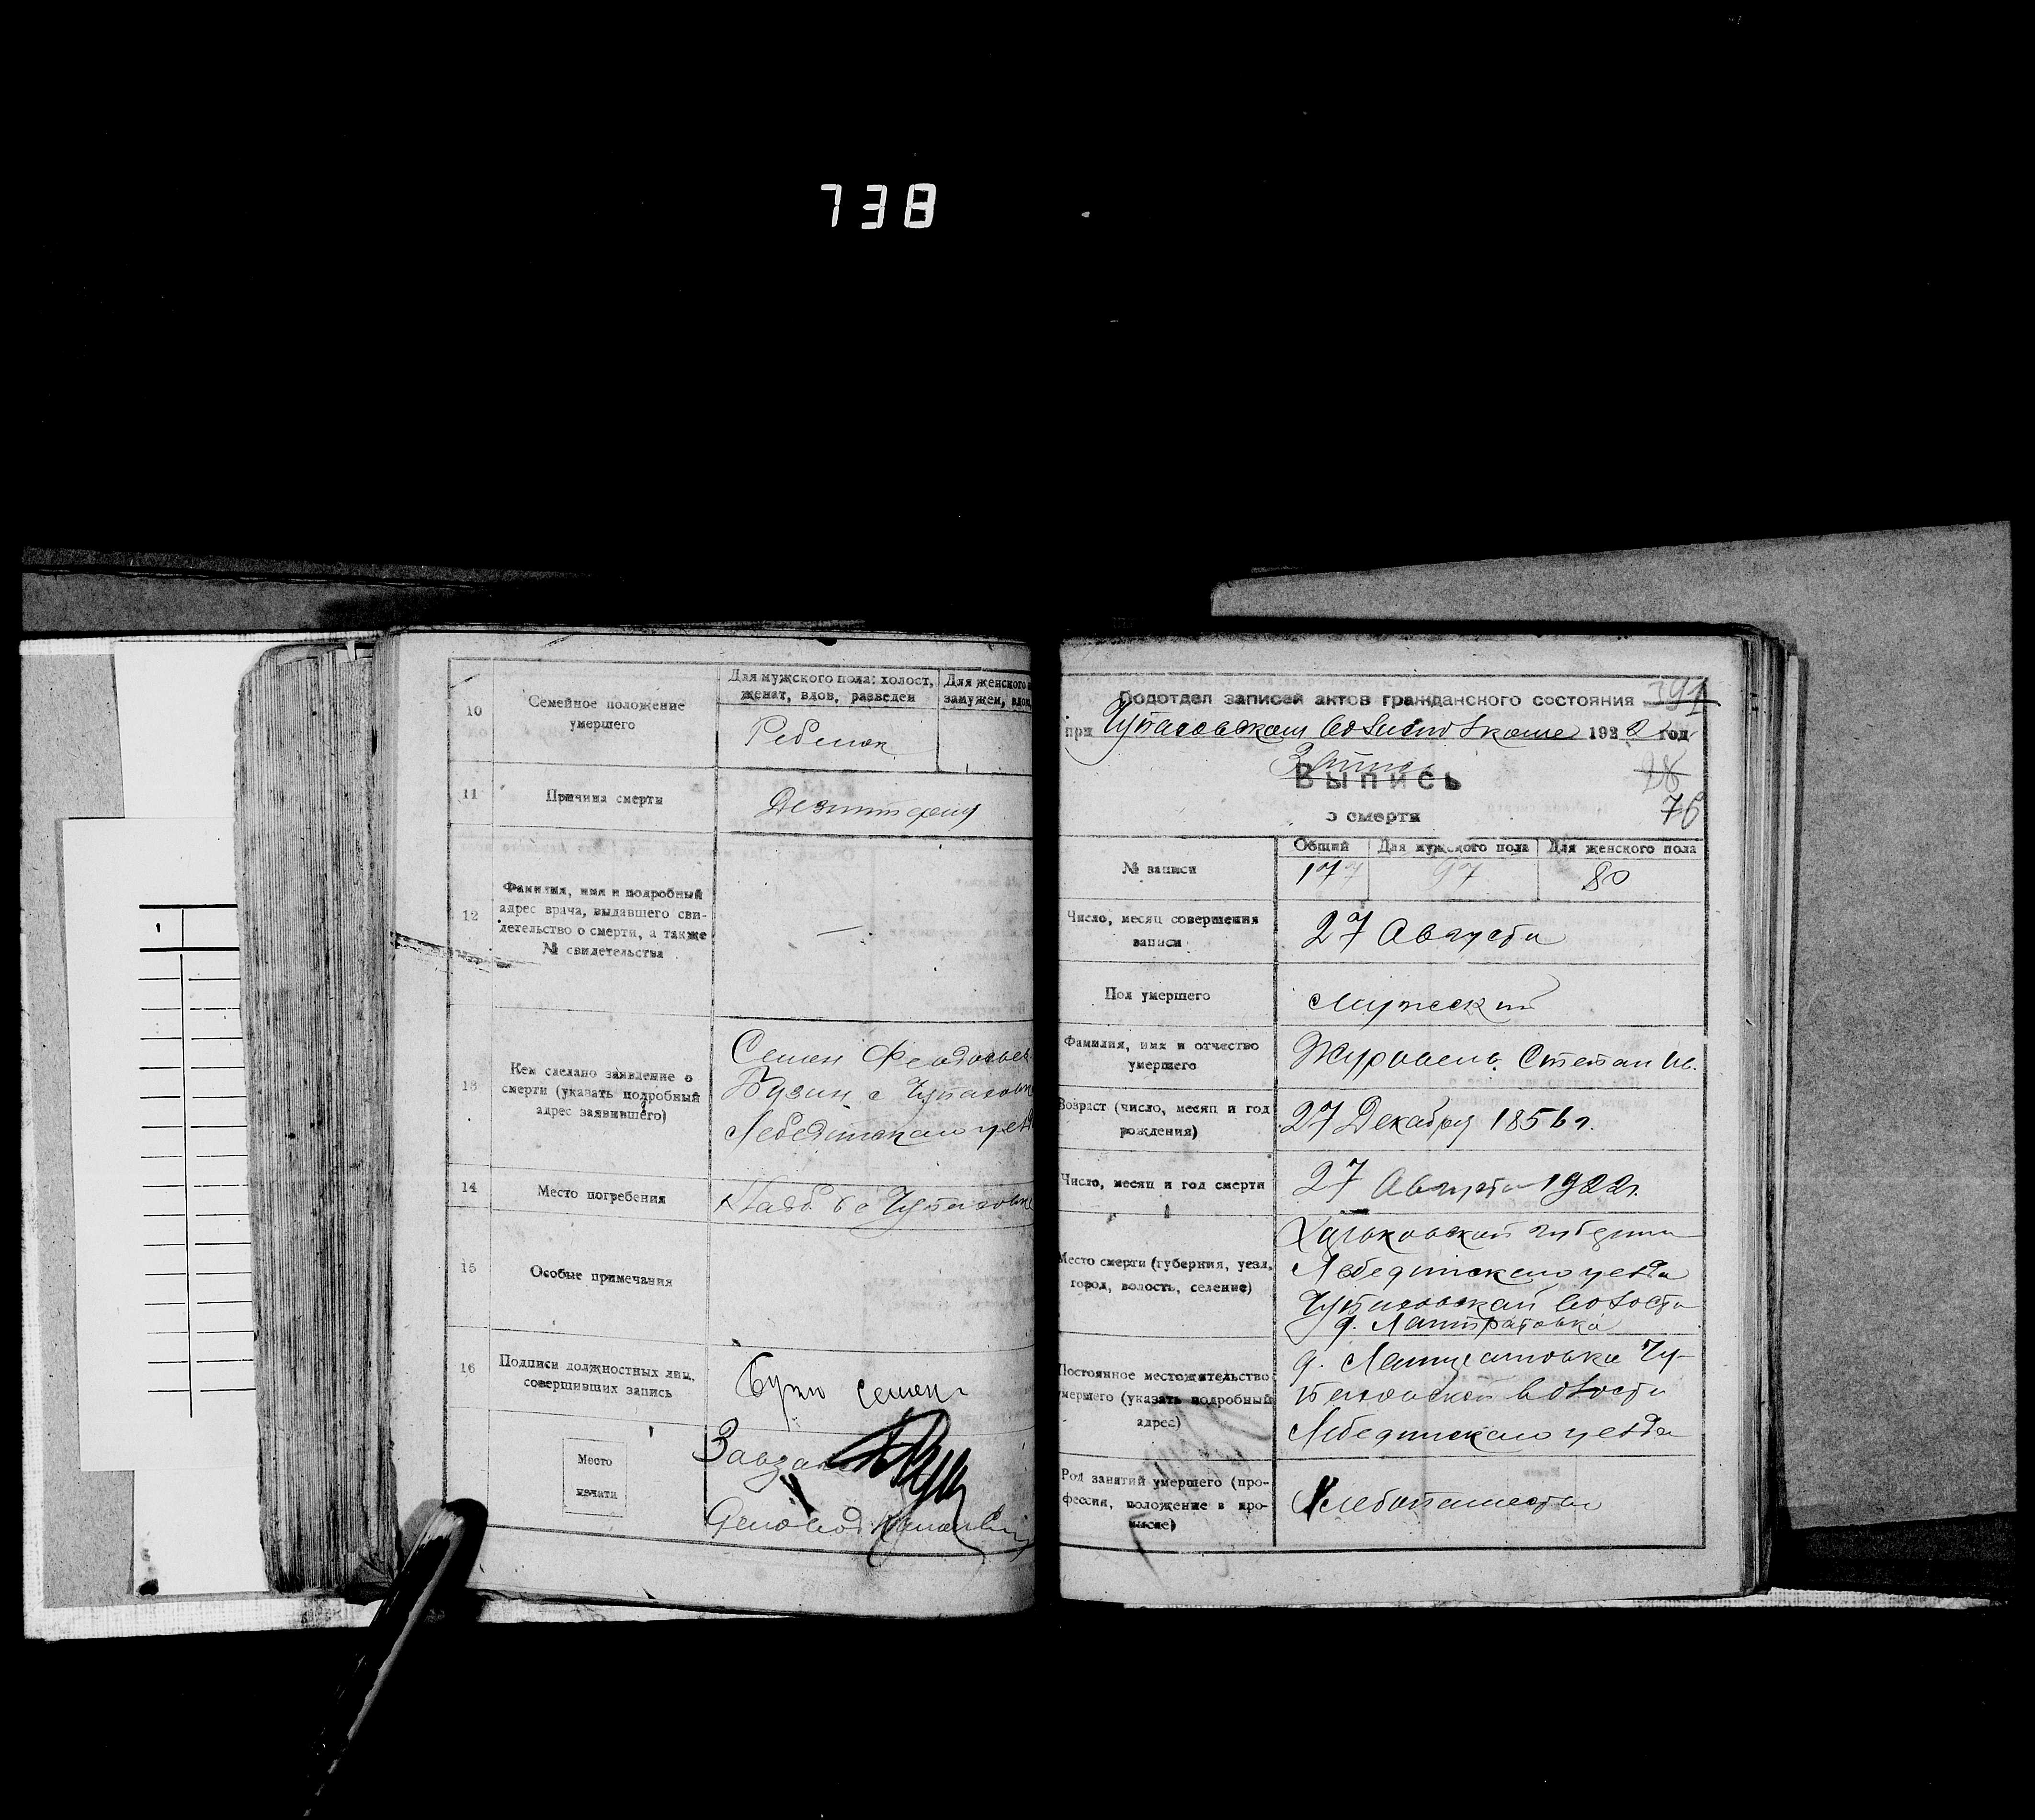 738
10
Семейное положение
умершего
Для мужского пола: холост,
женат, вдов, разведен
Для женского
замужем,
Ребенок
11
Причина смерти
Дезинтерия
12
Фамилия, имя и подробный
адрес врача, выдавшего сви-
детельство о смерти, а также
№ свидетельства
—
13
Кем сделано заявление о
смерти (указать подробный
адрес заявившего)
Семен
Бузин с
Лебединскаго
14
Место погребения
Кладб.
15
Особые примечания
16
Подписи должностных лиц,
совершивших запись
Семен
Место
печати
Подотдел записей актов гражданского состояния
391
при 192 2 год
Выпись
76
о смерти
№ записи
Общий
Для мужского пола
Для женского пола
177
97
80
Число, месяц совершения
записи
27 Августа
Пол умершего
Мужский
Фамилия, имя и отчество
умершего
Журавель Степан Ив.
Возраст (число, месяц и год
рождения)
27 Декабря 1856 г.
Число, месяц и год смерти
27 Августа 1922 г.
Место смерти (губерния, уезд,
город, волость, селение)
Харьковской губернии
Лебединскаго уезда
волости
Постоянное местожительство
умершего (указать подробный
адрес)
волости
Лебединскаго уезда
Род занятий умершего (про-
фессия, положение в про-
мысле)
Хлебопашество